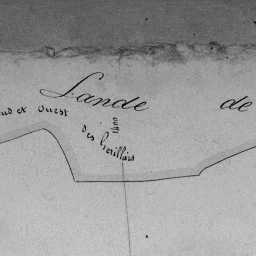 Lande de
ud et ouest
des
1400